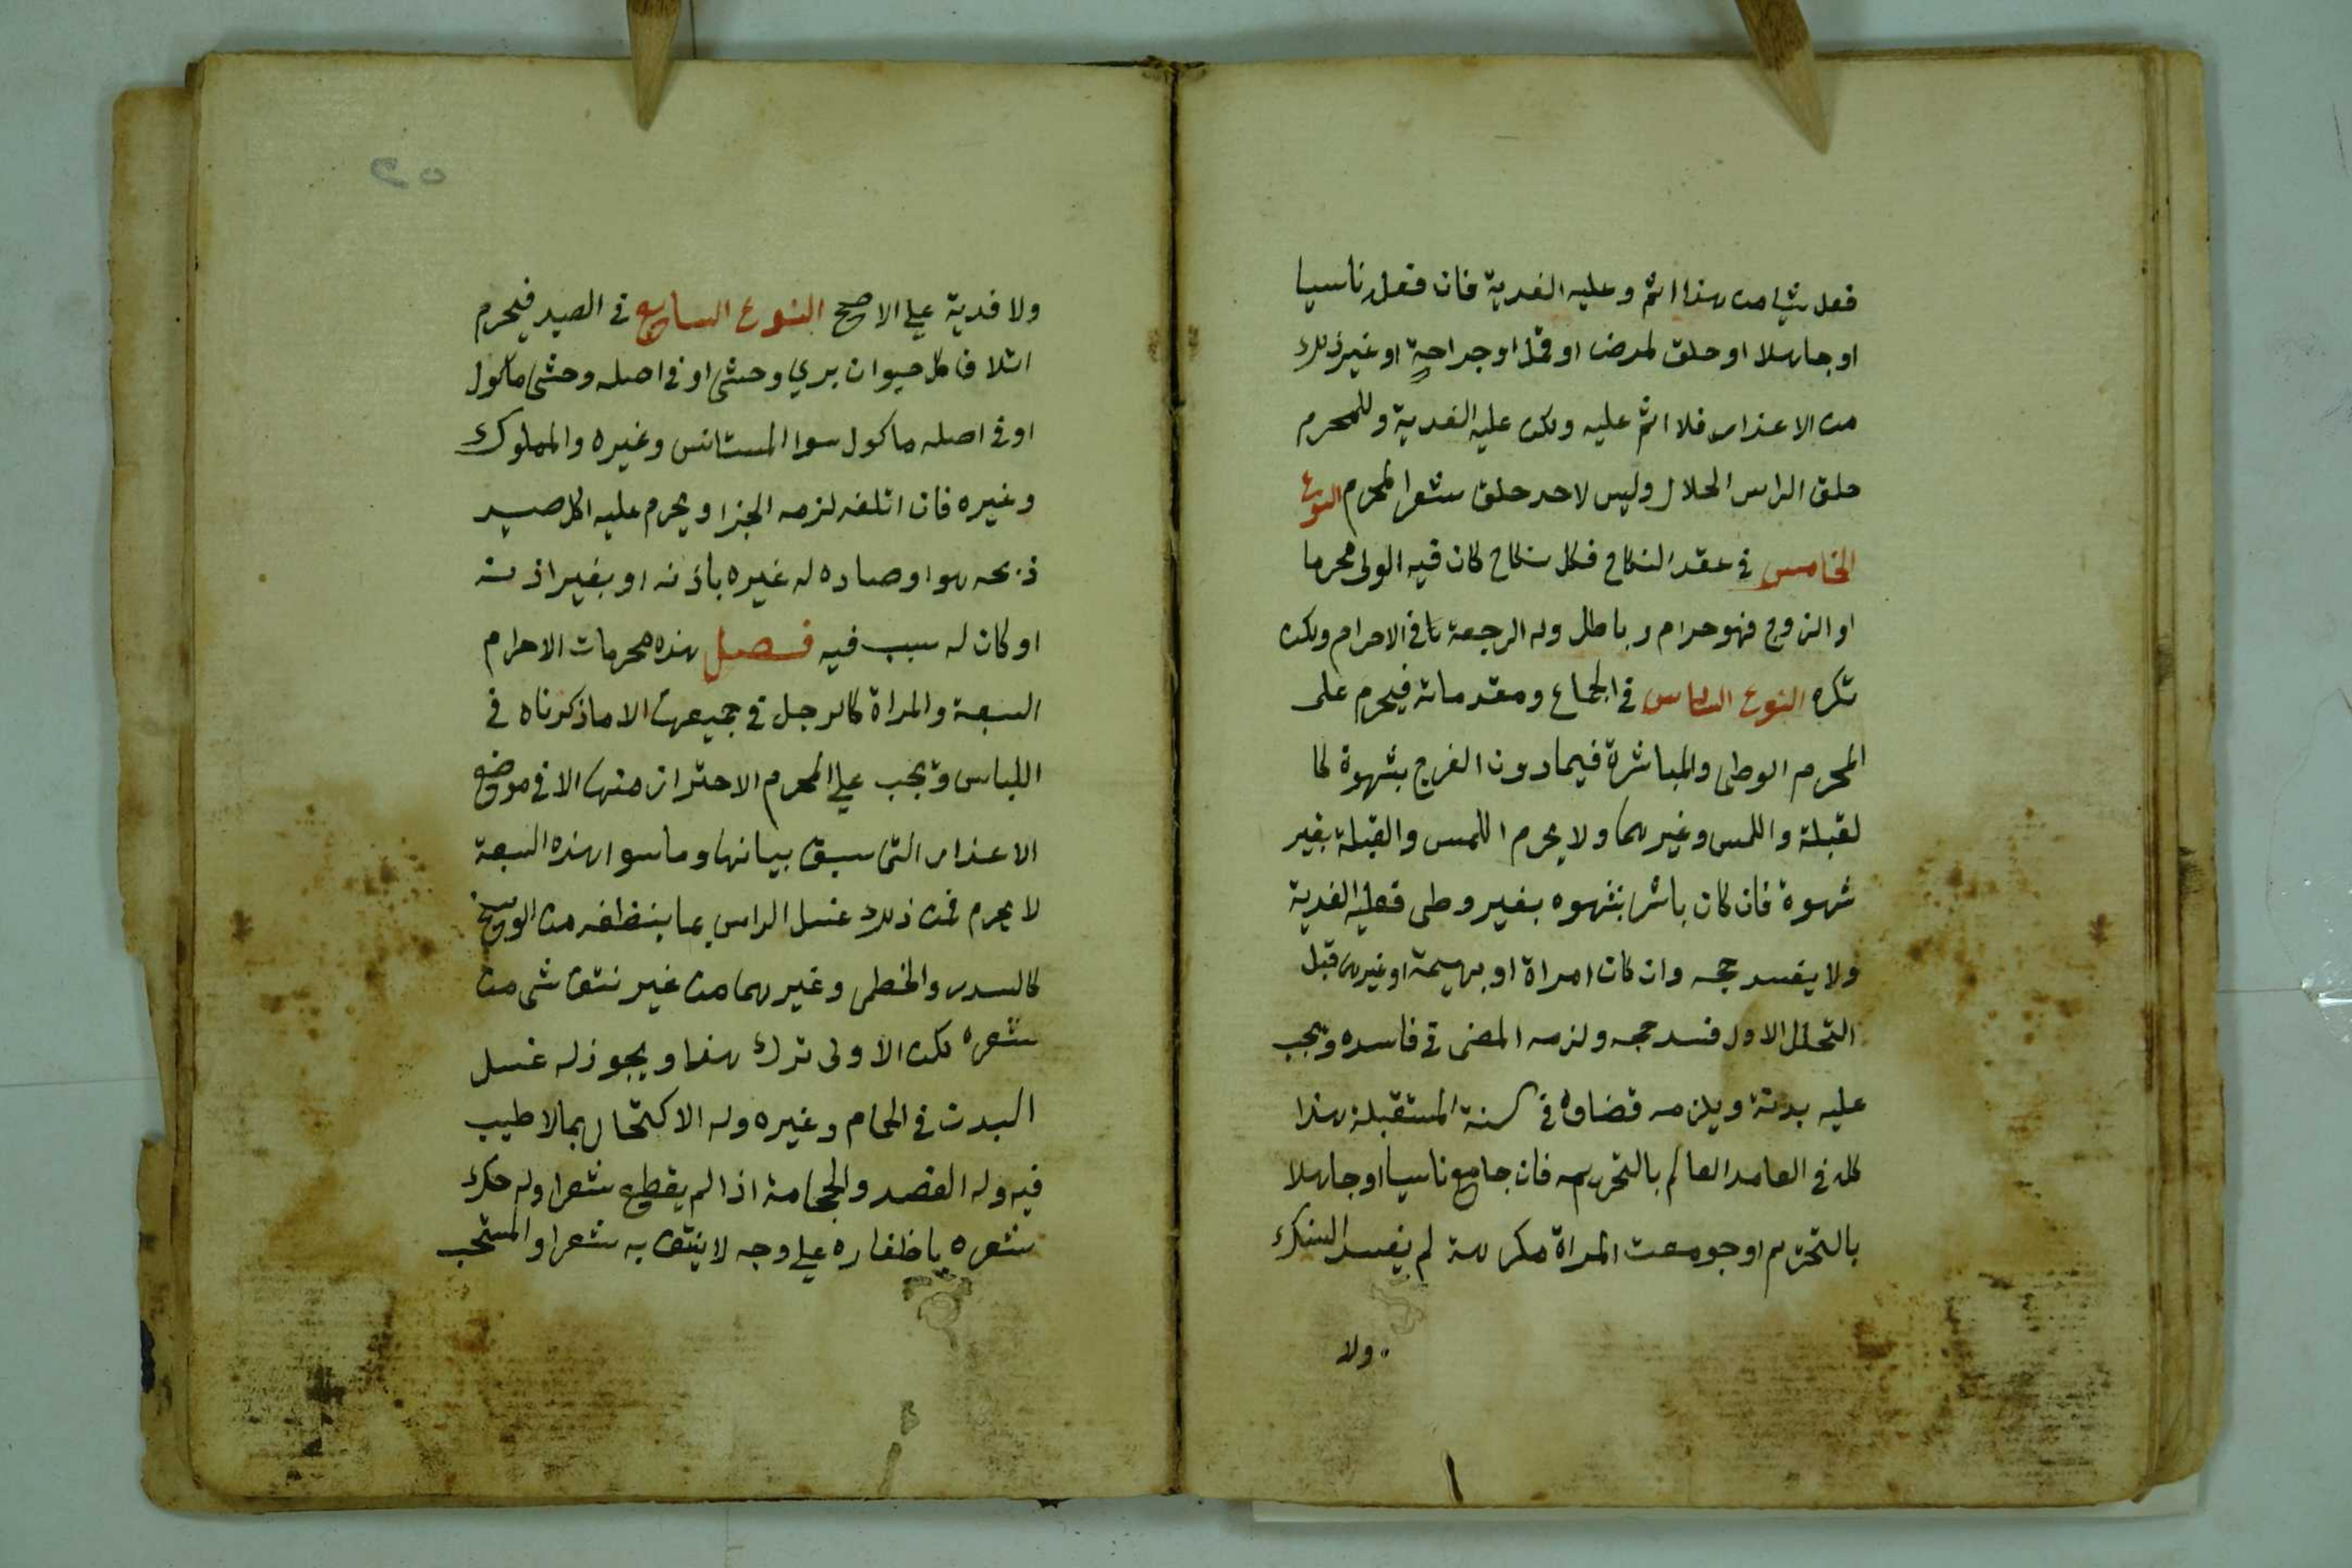 فعل شيا من هذا اثم وعليه الفدية فان فعل ناسيا
او جاهلا او حلق لمرض او قمل او جراحة او غير ذلك
من الاعذار فلا اثم عليه ولكن عليه الفدية وللمحرم
حلق الراس الحلال وليس لاحد حلق شعر المحرم النوع
الخامس في عقد النكاح فكل نكاح كان فيه الولى محرما
او الزوج فهو حرام وباطل وله الرجعة في الاحرام ولكن
تكره النوع السادس في الجماع ومقدماته فيحرم على
المحرم الوطى والمباشرة فيما دون الفرج بشهوة كا
لقبلة واللمس وغيرهما ولا يحرم اللمس والقبلة بغير
شهوة فان كان باشر بشهوه بغير وطى فعليه الفدية
ولا يفسد حجه وان كان امراة او بهيمة او غيرها قبل
التحلل الاول فسد حجه ولزمه المضى في فاسده ويجب
عليه بدنة ويلزمه قضاوه في السنة المستقبلة هذا
كله في العامد العالم بالتحريم فان جامع ناسيا او جاهلا
بالتحريم او جومعت المراة مكرهة لم يفسد النسك
ولا
٥٩
ولا فدية علي الاصح النوع السابع في الصيد فيحرم
اتلاف كل حيوان بري وحشى او في اصله وحشى ماكول
او في اصله ماكول سوا المستانس وغيره والمملوك
وغيره فان اتلفه لزمه الجزا ويحرم عليه اكل صيد
ذبحه هو او صاده له غيره باذنه او بغير اذنه
او كان له سبب فيه فصل هذه محرمات الاحرام
السبعة والمراة كالرجل في جميعها الا ما ذكرناه في
اللباس ويجب علي المحرم الاحتراز منها الا في موضع
الاعذار التى سبق بيانها وما سوا هذه السبعة
لا يحرم فمن ذلك غسل الراس بما ينظفه من الوسخ
كالسدر والخطمى وغيرهما من غير نتف شى من
شعره لكن الاولى ترك هذا ويجوز له غسل
البدن في الحمام وغيره وله الاكتحال بما لا طيب
فيه وله الفصد والحجامة اذا لم يقطع شعرا وله حك
شعره باظفاره علي وجه لا ينتف به شعرا والمستحب